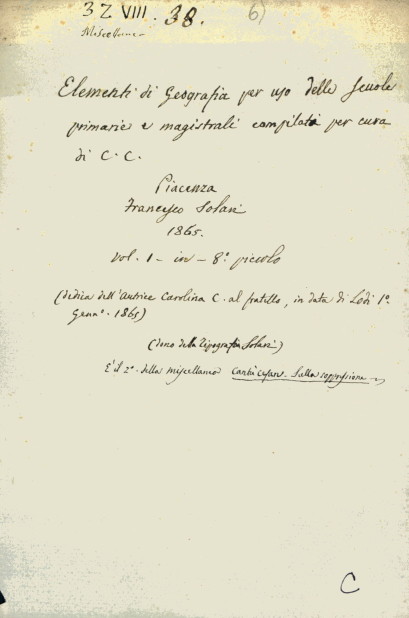 3Z VIII. 38. 6)
Miscellanea
Elementi di Geografia per uso delle scuole
primarie e magistrali compilati per cura
di C. C.
Piacenza
Francesco Solari
1865.
vol. 1 - in - 8° piccolo
(dedica dell'Autrice Carolina C. al fratello, in data di Lodi 1°.
Genn°. 1865)
(dono della Tipografia Solari)
È il 2°. della miscellanea Cantù Cesare. Sulla soppressione
C